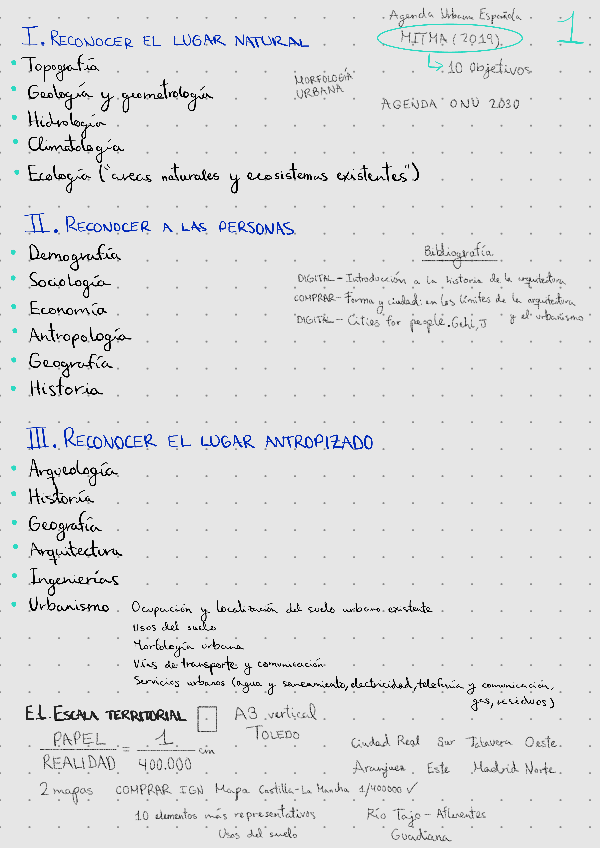 Agenda Urbana Española
1
I. RECONOCER EL LUGAR NATURAL
MITMA (2019)
↳ 10 Objetivos
• Topografía
MORFOLOGÍA
URBANA
• Geología y geometrología
AGENDA ONU 2030
• Hidrología
• Climatología
• Ecología ("areas naturales y ecosistemas existentes")
II. RECONOCER A LAS PERSONAS
• Demografía
Bibliografía
• Sociología
DIGITAL - Introducción a la historia de la arquitectura
• Economía
COMPRAR - Forma y ciudad: en los límites de la arquitectura
y el urbanismo
• Antropología
DIGITAL - Cities for people. Gehl, J
• Geografía
• Historia
III. RECONOCER EL LUGAR ANTROPIZADO
• Arqueología
• Historía
• Geografía
• Arquitectura
• Ingenierías
• Urbanismo Ocupación y localización del suelo urbano existente
Usos del suelo
Morfología urbana
Vías de transporte y comunicación
Servicios urbanos (agua y saneamiento, electricidad, telefonía y comunicación,
gas, residuos)
E.1. ESCALA TERRITORIAL A3 vertical
TOLEDO
PAPEL / REALIDAD = 1 / 400.000 cm
Ciudad Real Sur Talavera Oeste.
Aranjuez Este Madrid Norte.
2 mapas COMPRAR IGN Mapa Castilla-La Mancha 1/400000 ✓
10 elementos más representativos
Río Tajo - Afluentes
Usos del suelo
Guadiana